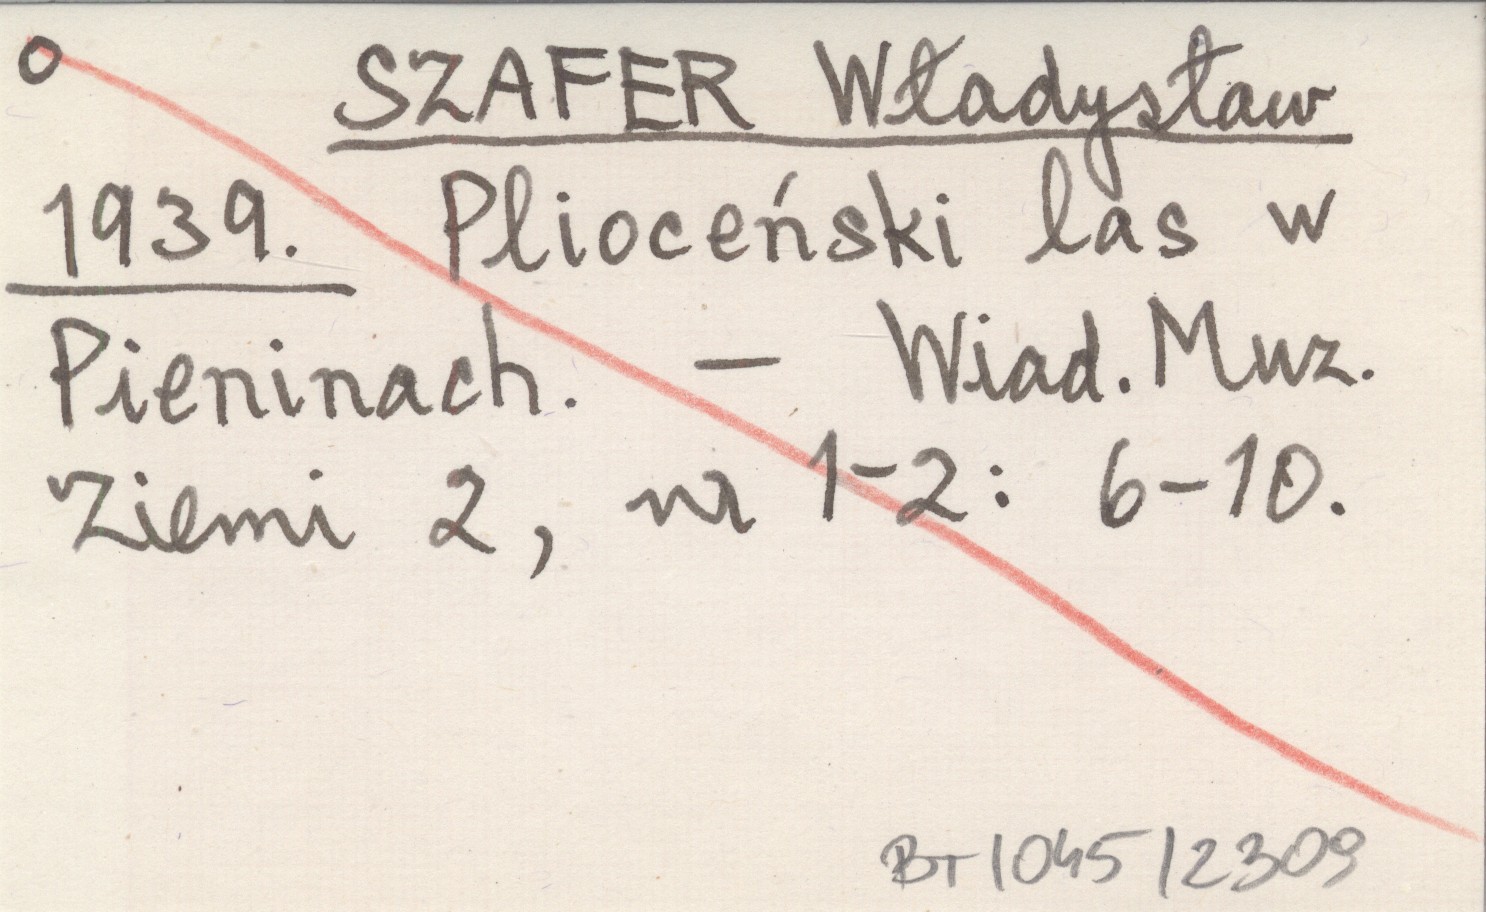 O SZAFER Władysław
1939. Plioceński las w
Pieninach. — Wiad. Muz.
Ziemi 2, nr 1-2: 6-10.
BT/045/2309